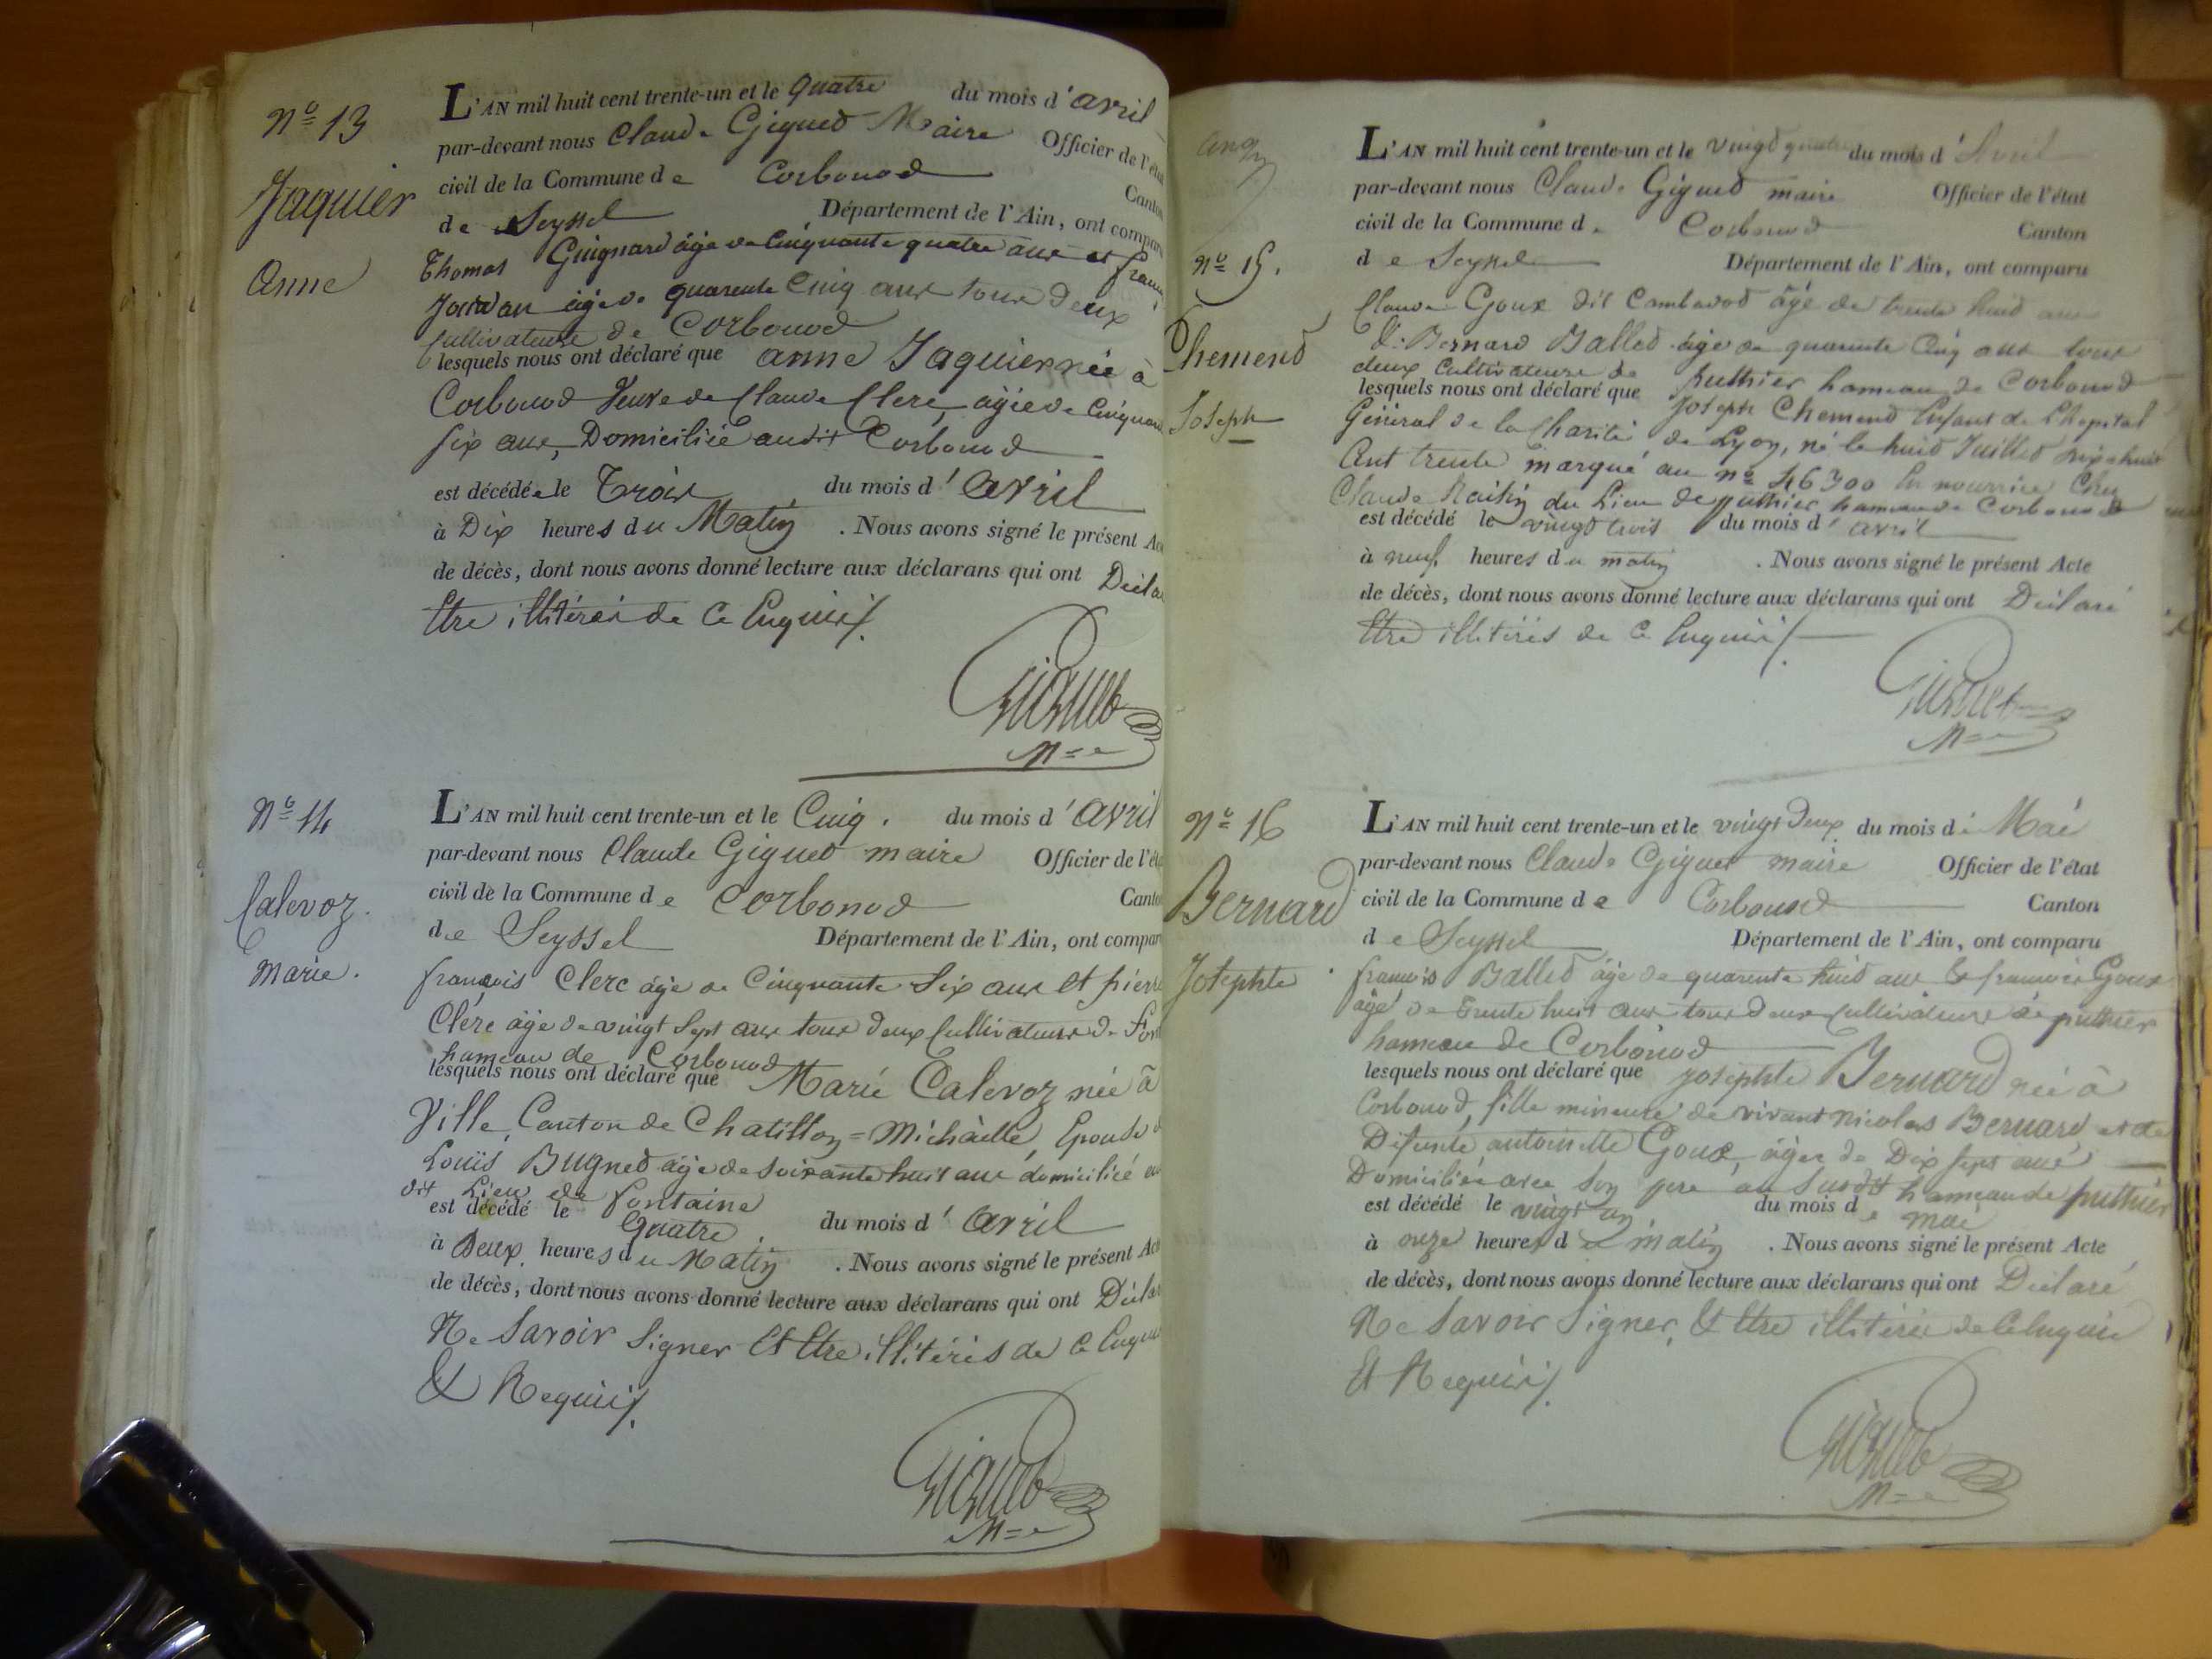 Nº 13
Jaquier
Anne
L'AN mil huit cent trente-un et le quatre du mois d'avril
par-devant nous Claude Gigued Maire Officier de l'état
civil de la Commune de Corbonod Canton
de Seyssel Département de l'Ain, ont compar
Thomas Guignard âgé de Cinquante quatre ans et
Jourdan âgé de quarente Cinq ans tous deux
Cultivateurs de Corbonod
lesquels nous ont déclaré que anne Jaquier née à
Corbonod Veuve de Claude Clerc, âgée de Cinquan
six ans, Domiciliée audit Corbonod
est décédée le Trois du mois d'avril
à Dix heures du Matin . Nous avons signé le présent Ac
de décès, dont nous avons donné lecture aux déclarans qui ont Décla
Etre illitérés de ce Enquis/.
Gigued
M=e
Nº 14
Calevoz.
marie.
L'AN mil huit cent trente-un et le Cinq. du mois d'avril
par-devant nous Claude Gigued maire Officier de l'éta
civil de la Commune de Corbonod Canto
de Seyssel Département de l'Ain, ont compar
françois Clerc âgé de Cinquante Six ans et pierre
Clerc âgé de vingt Sept ans tous deux Cultivateurs de Font
hameau de Corbonod
lesquels nous ont déclaré que Marie Calevoz née à
Ville, Canton de Chatillon=Michaille, Epouse d
Louis Bugned âgée de soixante huit ans domicilié au
dit Lieu de fontaine
est décédé le Quatre du mois d'avril
à Deux heures du Matin . Nous avons signé le présent Act
de décès, dont nous avons donné lecture aux déclarans qui ont Décla
Ne Savoir Signer Et Etre illitérés de ce Enquis
& Requis/.
Gigued
M=e
Nº 15.
Chemend
Joseph
L'AN mil huit cent trente-un et le vingt quatre du mois d'Avril
par-devant nous Claude Gigued maire Officier de l'état
civil de la Commune de Corbonod Canton
de Seyssel Département de l'Ain, ont comparu
Claude Goux dit Combavod âgé de trente huid ans
& Bernard Balled âgé de quarente Cinq ans tous
deux Cultivateurs de puthier hameau de Corbonod
lesquels nous ont déclaré que Joseph Chemend Enfant de L'hopital
Général de la Charité de Lyon, né le huid Juilled dix=huit
Cent trente marqué au nº 46300 En nourrice Chez
Claude du Lieu de puthier hameau de Corbonod
est décédé le vingt trois du mois d'avril
à neuf heures du matin . Nous avons signé le présent Acte
de décès, dont nous avons donné lecture aux déclarans qui ont Déclaré
Etre illitérés de ce Enquis/.
Gigued
M=e
Nº 16
Bernard
Josephte
L'AN mil huit cent trente-un et le vingt Deux du mois de Mai
par-devant nous Claude Giguet maire Officier de l'état
civil de la Commune de Corbonod Canton
de Seyssel Département de l'Ain, ont comparu
françois Balled âgé de quarente huid ans & françois Goux
âgé de trente huit ans tous deux Cultivateurs de puthier
hameau de Corbonod
lesquels nous ont déclaré que Josephte Bernard née à
Corbonod, fille mineure de vivant Nicolas Bernard et de
Défunte antoinette Goux, âgée de Dix sept ans
Domiciliée avec son pere au susdit hameau de puthier
est décédé le vingt un du mois de mai
à onze heures du matin . Nous avons signé le présent Acte
de décès, dont nous avons donné lecture aux déclarans qui ont Déclaré
Ne Savoir Signer, Et Etre illitérés de ce Enquis
Et Requis/.
Gigued
M=e